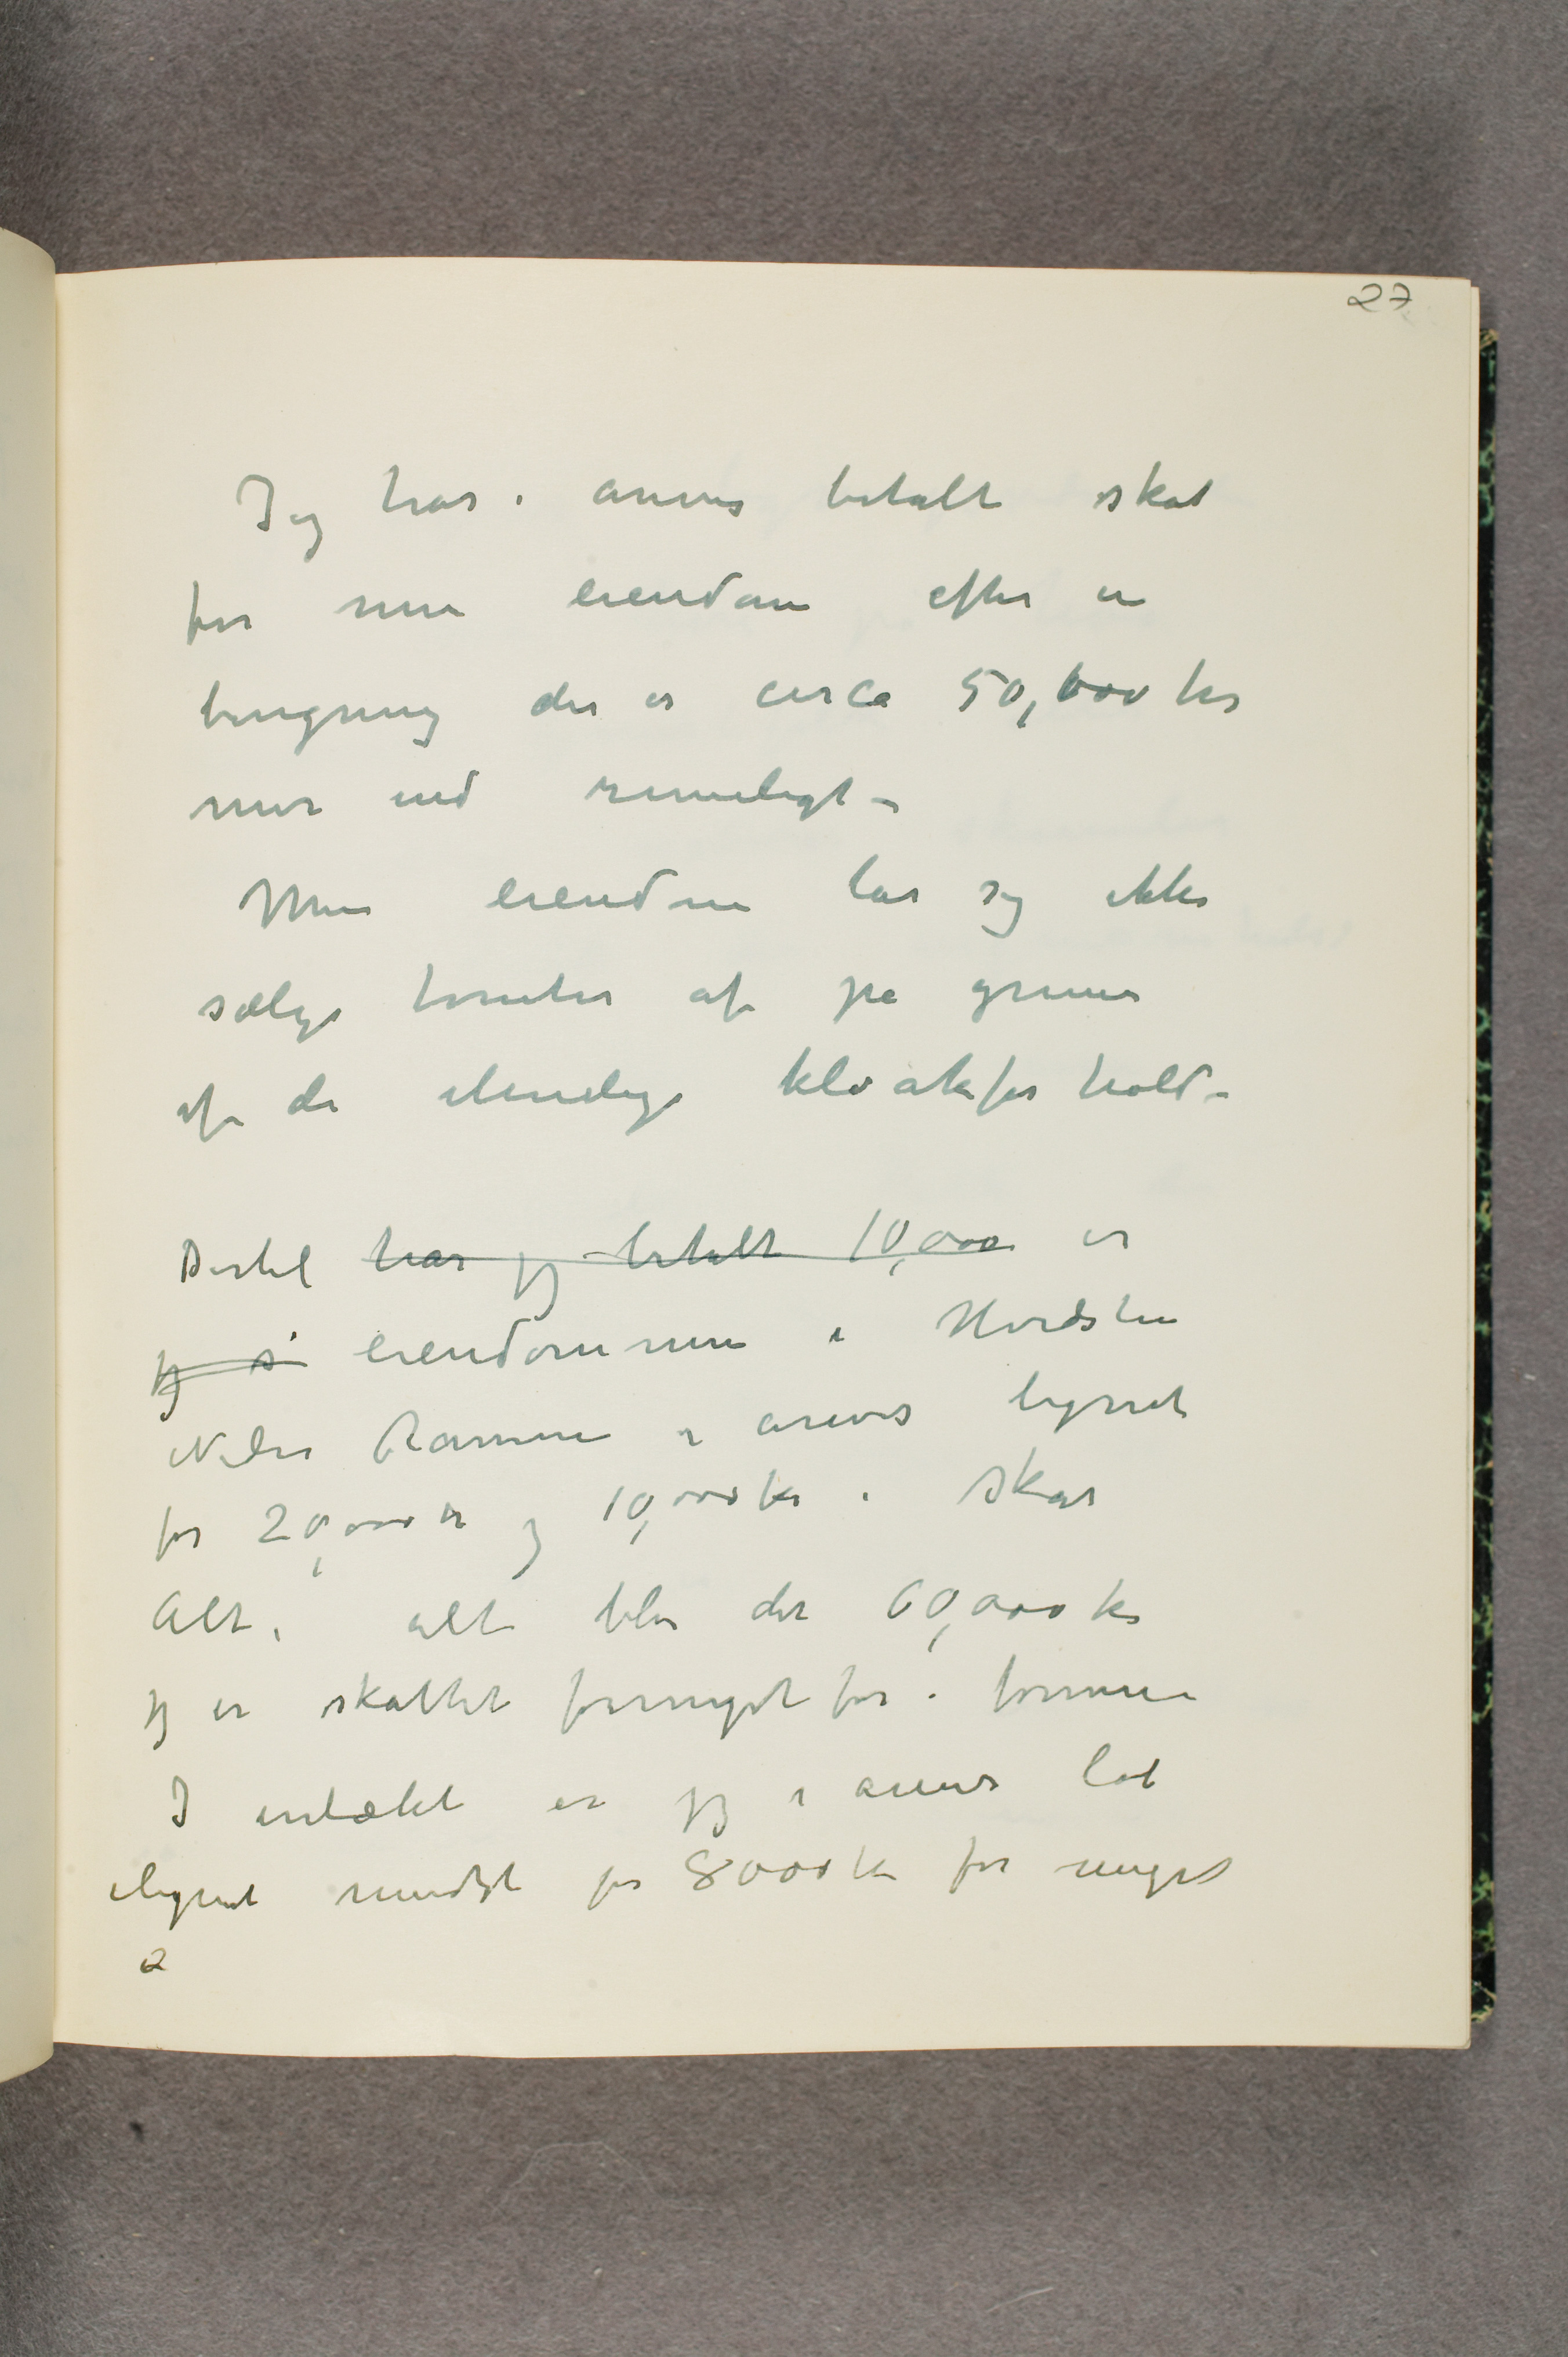 27
Jeg har i årevis betalt skat
for min eiendom efter en
beregning der er circa 50,000 kr
mer end rimeligt –
Min eiendom lar sig ikke
sælge tomter af på grund
af de elendige kloakforhold –
Dertil har jeg betalt 10,000 er
jeg i eiendommene i Hvidsten
Nedre Ramme i årevis lignet
for 20,000 kr og 10,000 kr i Skat
Alt i alt blir det 60,000 kr
jeg er skattet formyet for i formue
I indtækt er jeg i årevis lat
ilignet mindst for 8000 kr for meget
2